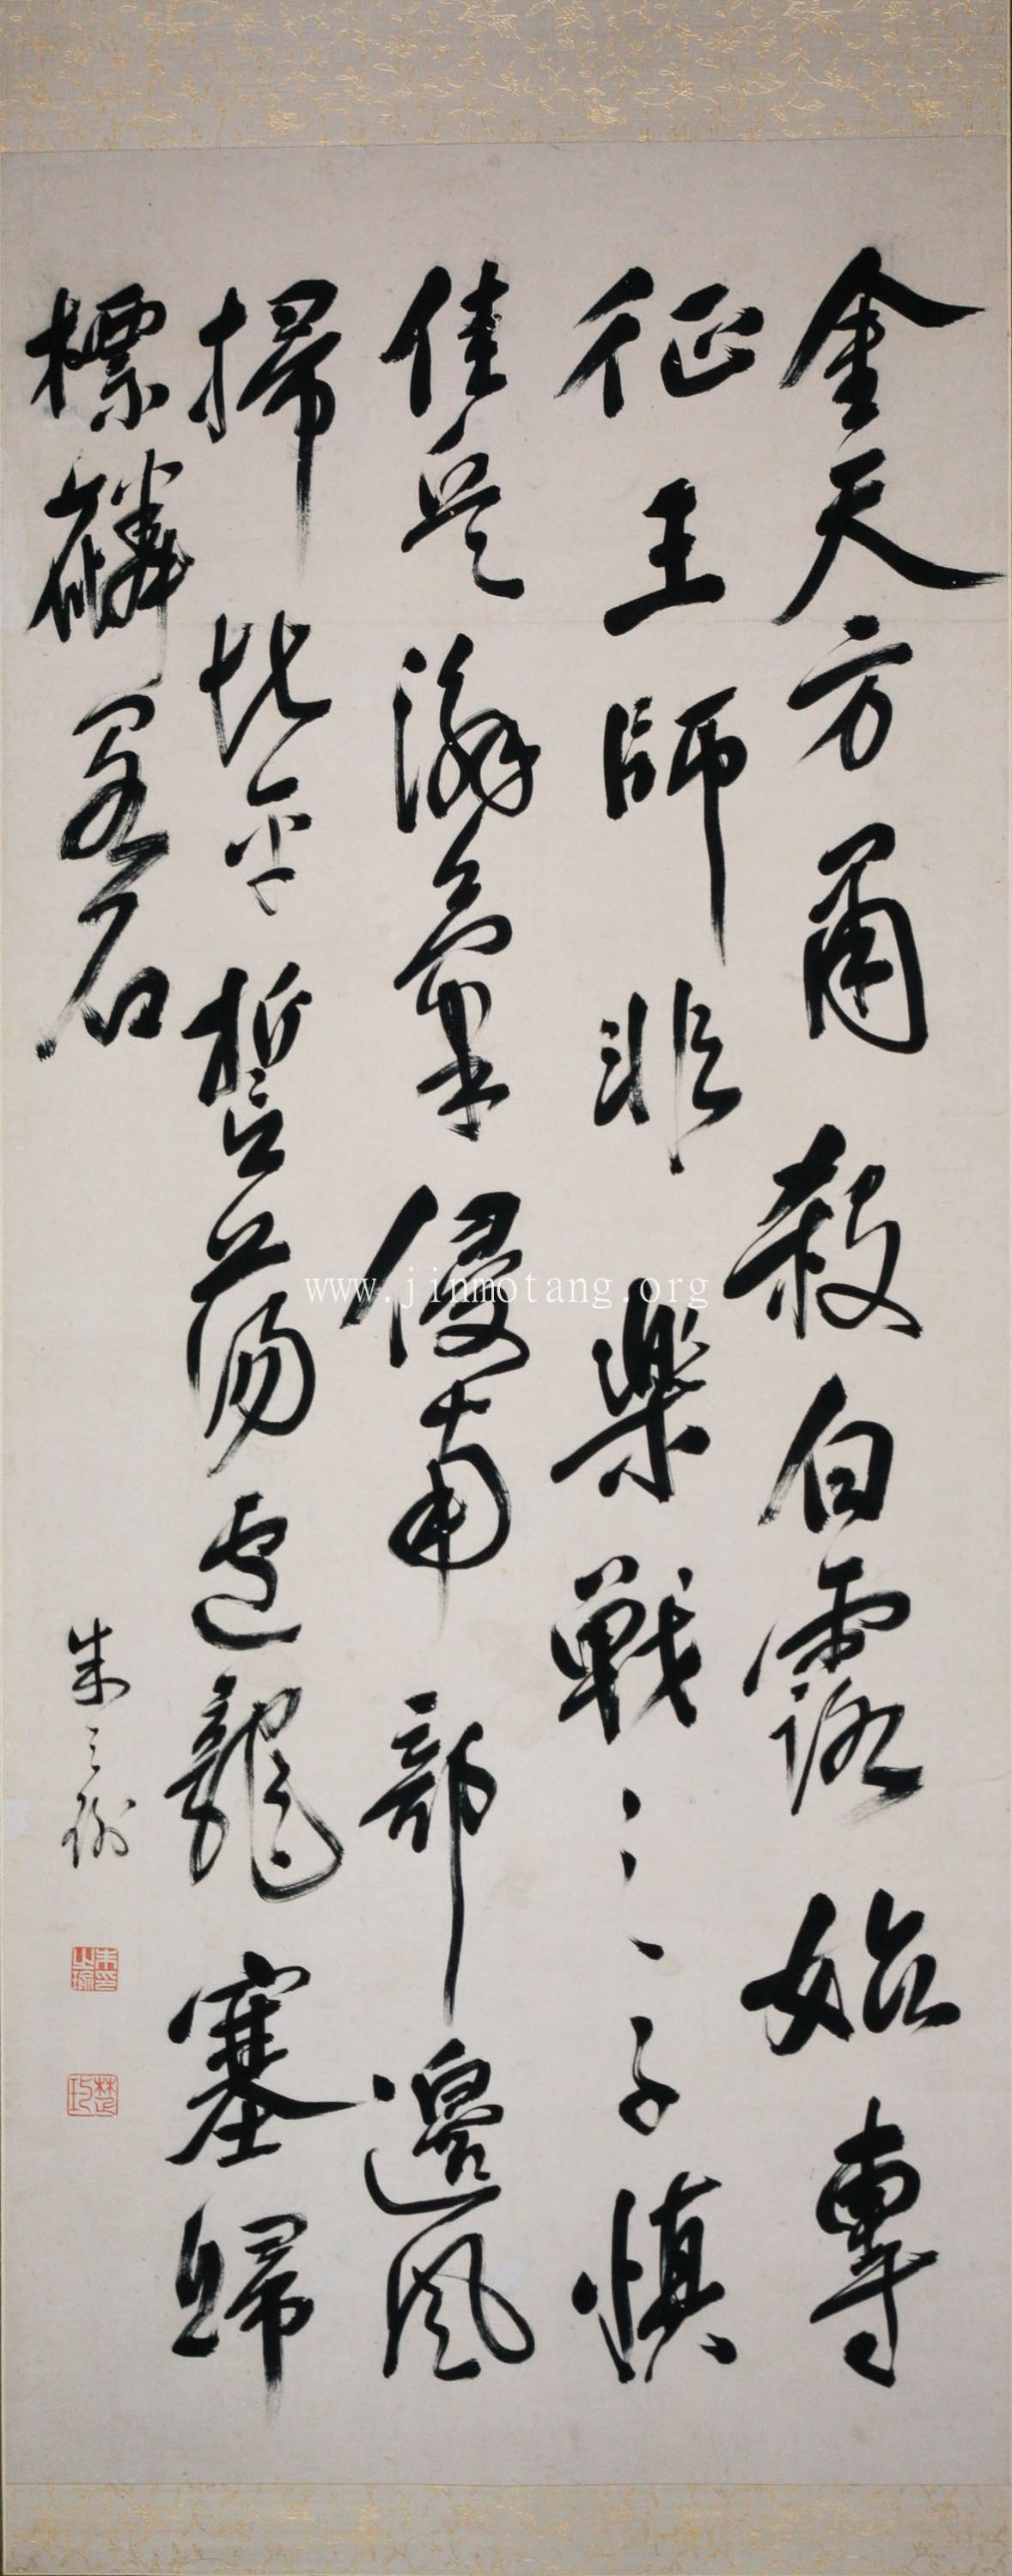 金天方肅殺白露始專
征王師非樂戰之子慎
佳兵海氣侵南部邊風
掃北平誓蕩盧龍塞歸
標麟閣名
朱之瑜
朱之瑜印
www.jinmotang.org